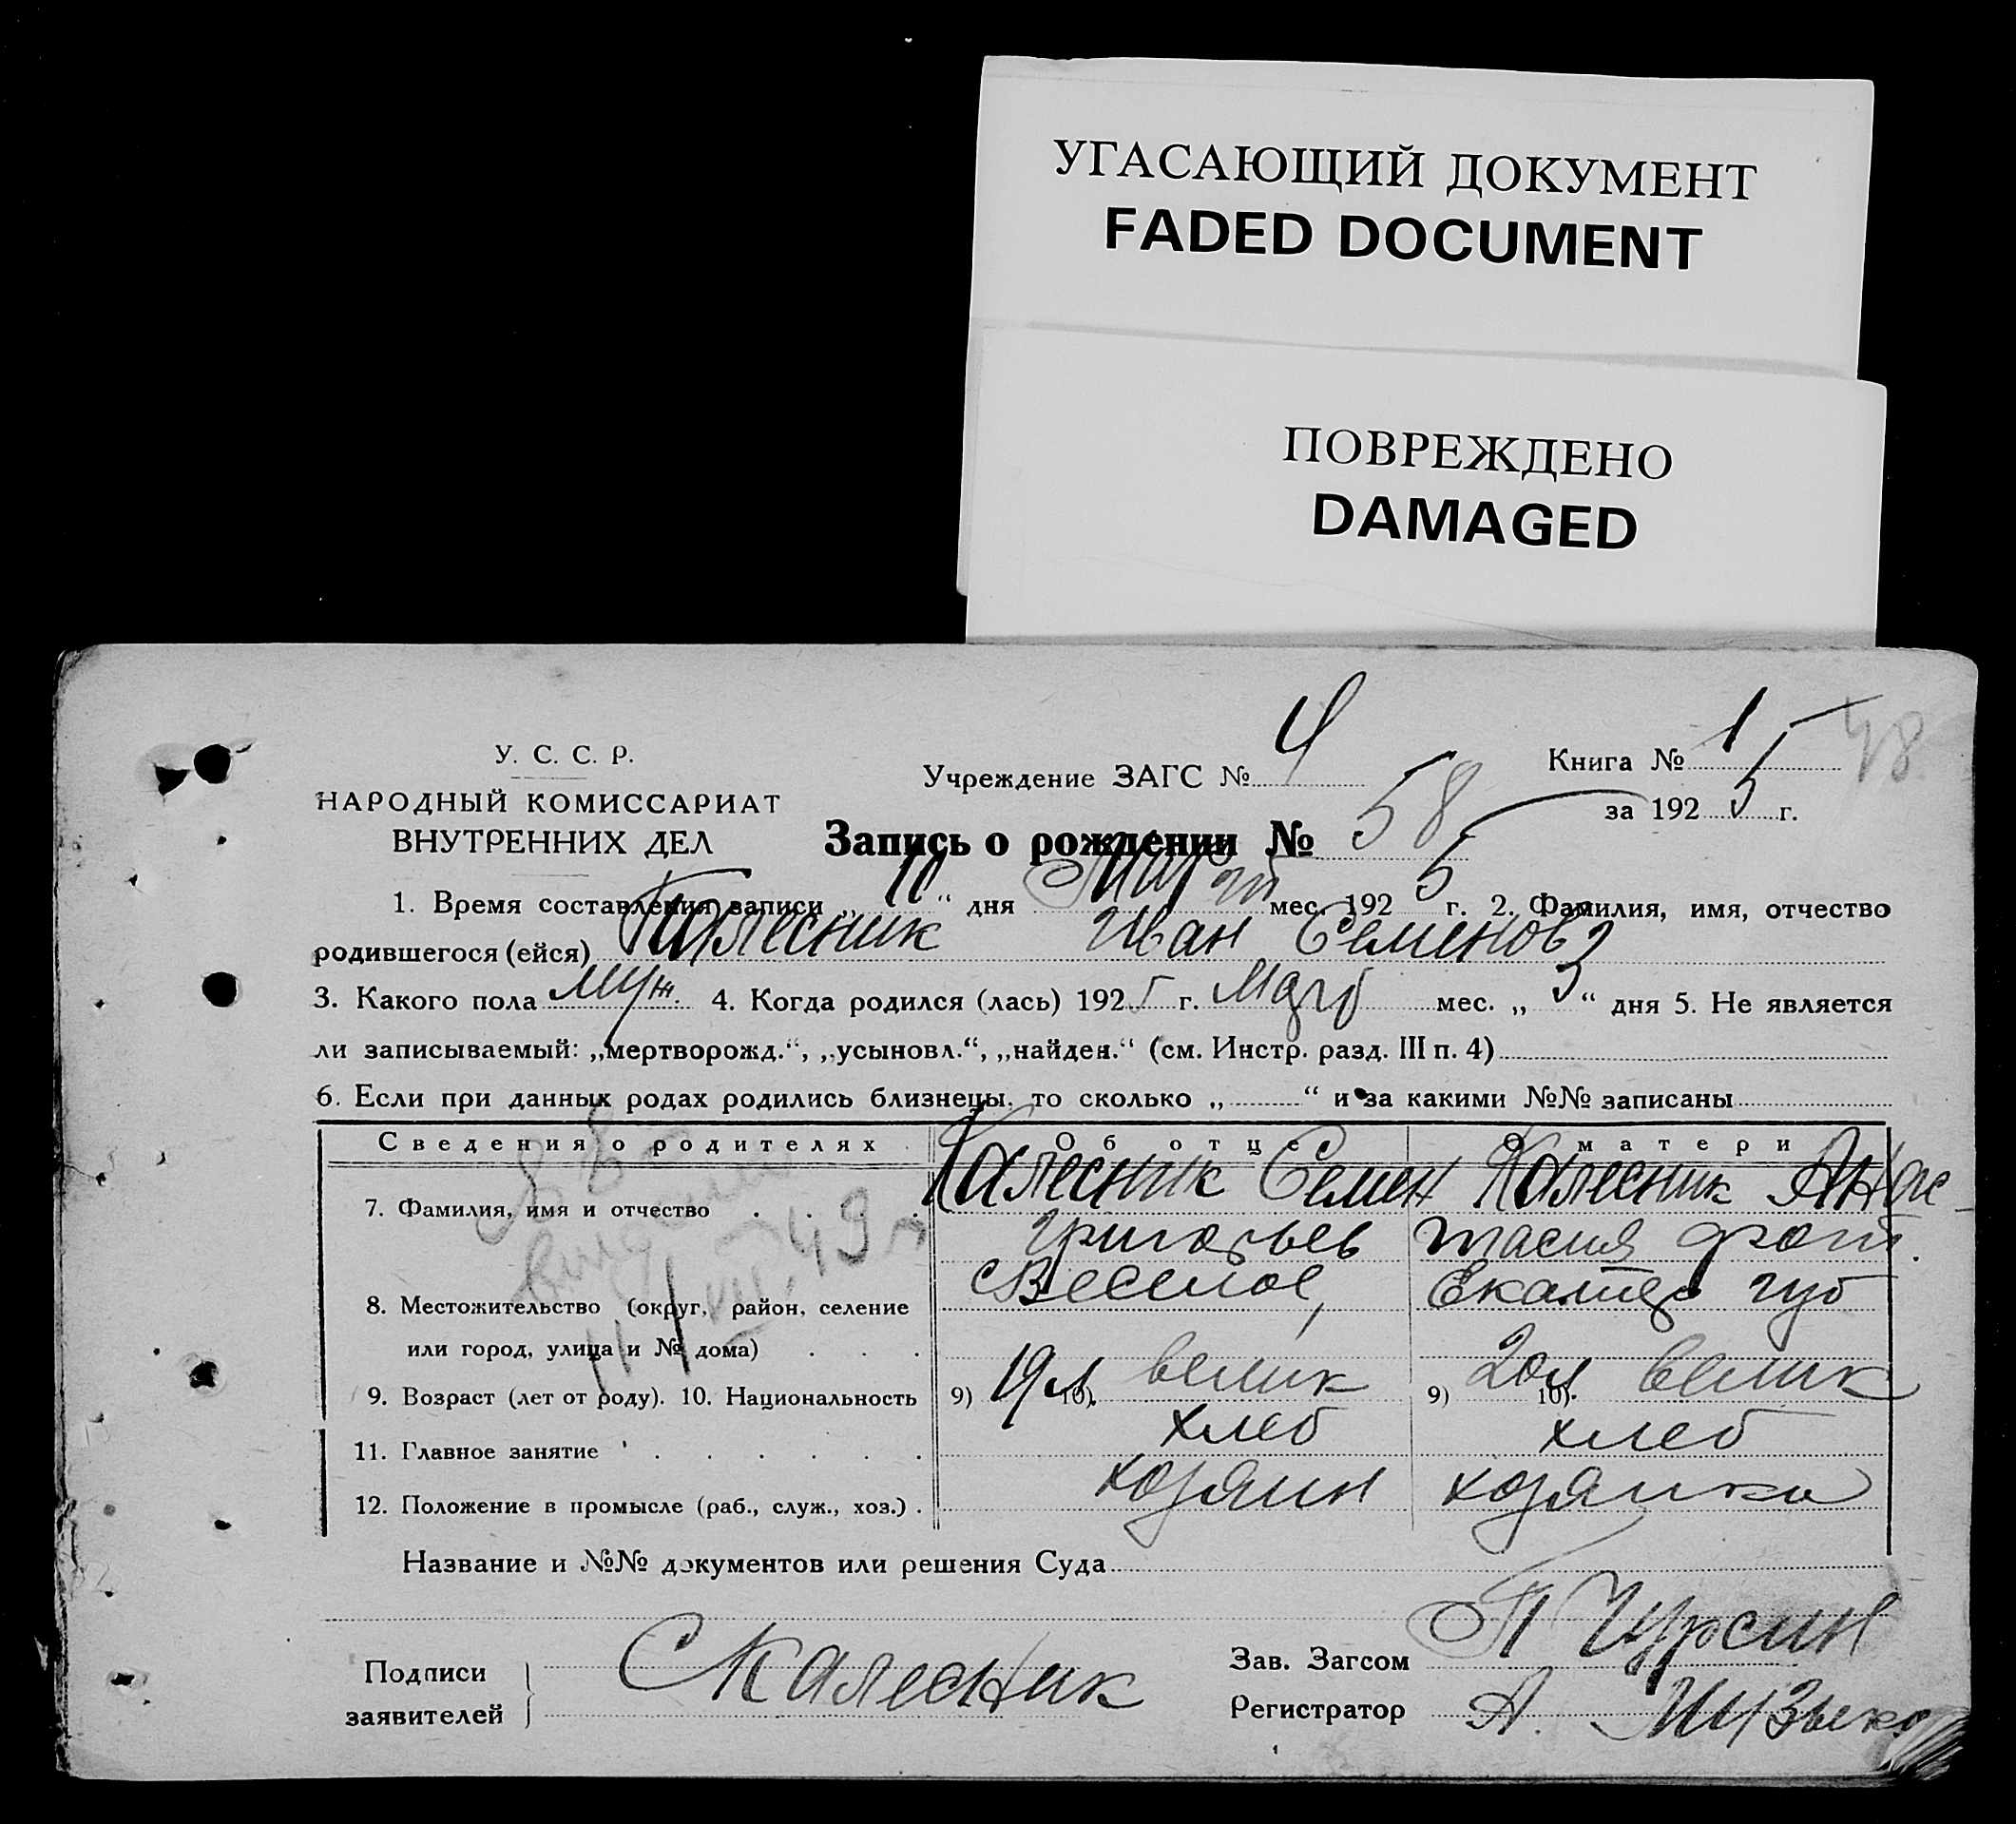 УГАСАЮЩИЙ ДОКУМЕНТ
FADED DOCUMENT
ПОВРЕЖДЕНО
DAMAGED
У. С. С. Р.
НАРОДНЫЙ КОМИССАРИАТ
ВНУТРЕННИХ ДЕЛ
Учреждение ЗАГС № 4
Книга № 1
48
за 1925 г.
Запись о рождении № 58
1. Время составления записи „10“ дня Март мес. 1925 г. 2. Фамилия, имя, отчество
родившегося (ейся) Калесник Иван Семенов
3. Какого пола муж. 4. Когда родился (лась) 1925 г. Март мес. „3“ дня 5. Не является
ли записываемый: „мертворожд.“, „усыновл.“, „найден.“ (см. Инстр. разд. III п. 4)
6. Если при данных родах родились близнецы, то сколько „ “ и за какими №№ записаны
Сведения о родителях Об отце О матери
7. Фамилия, имя и отчество Калесник Семен Калесник Анас-
Григорьев тасия
8. Местожительство (округ, район, селение Веселое, Екатер губ
или город, улица и № дома)
9. Возраст (лет от роду). 10. Национальность 9) 19 л 10) велик 9) 20 л 10) велик
11. Главное занятие хлеб хлеб
12. Положение в промысле (раб., служ., хоз.) хозяин хозяйка
Название и №№ документов или решения Суда
Подписи
заявителей
С Калесник
Зав. Загсом
Регистратор А.